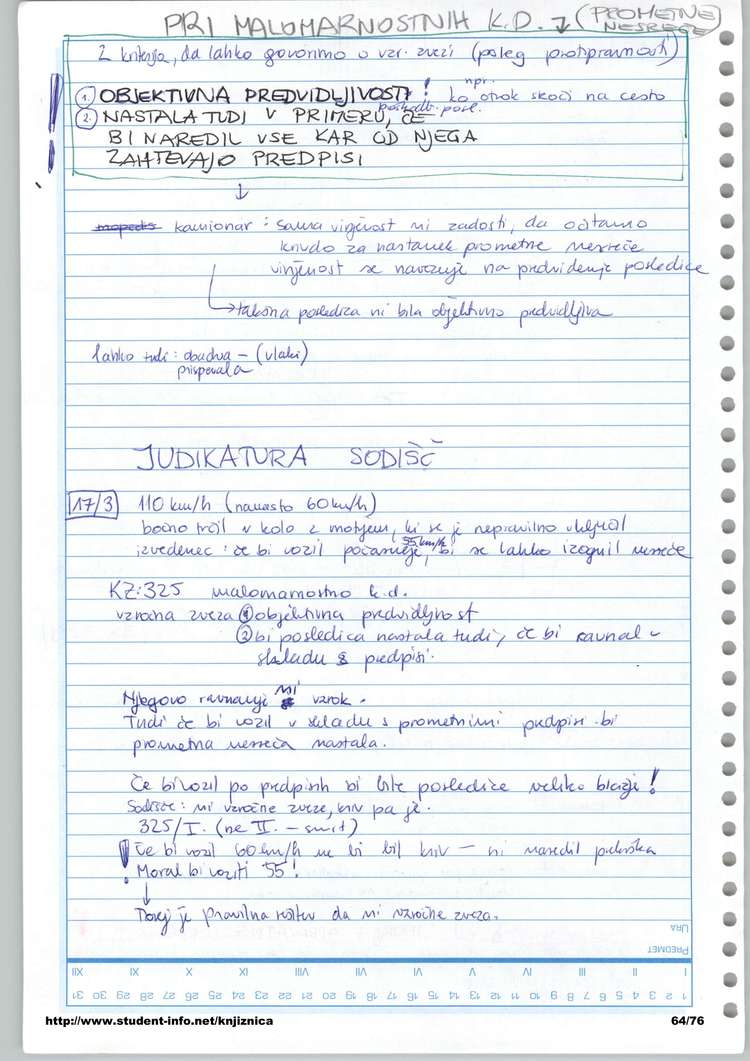 PRI MALOMARNOSTNIH K.D. ↓ (PROMETNE NESREČE)
2 kriterija, da lahko govorimo o vzr. zvezi (poleg protipravnosti)
1. OBJEKTIVNA PREDVIDLJIVOST! npr. ko otrok skoči na cesto
2. NASTALA TUDI V PRIMERU, ČE
BI NAREDIL VSE KAR OD NJEGA
ZAHTEVAJO PREDPISI
↓
kamionar : Sama vinjenost ni zadosti, da očitamo
krivdo za nastanek prometne nesreče
vinjenost se navezuje na predvidenje posledice
→ takšna posledica ni bila objektivno predvidljiva
lahko tudi : obadva – (vlaki)
prispevala
JUDIKATURA SODIŠČ
17/3 110 km/h (namesto 60 km/h)
bočno trčil v kolo z motorjem, ki se je nepravilno vključil
izvedenec : če bi vozil počasneje, 55 km/h bi se lahko izognil nesreče
KZ: 325 malomarnostno k.d.
vzročna zveza 1 objektivna predvidljivost
2 bi posledica nastala tudi, če bi ravnal v
skladu s predpisi.
Njegovo ravnanje ni vzrok.
Tudi če bi vozil v skladu s prometnimi predpisi bi
prometna nesreča nastala.
Če bi vozil po predpisih bi bile posledice veliko blažje!
Sodišče : ni vzročne zveze, kriv pa je.
325/I. (ne II. – smrt)
! Če bi vozil 60 km/h ne bi bil kriv – ni naredil prekrška
Moral bi voziti 55!
↓
Torej je pravilna rešitev da ni vzročne zveze.
URA
PREDMET
I II III IV V VI VII VIII IX X XI XII
1 2 3 4 5 6 7 8 9 10 11 12 13 14 15 16 17 18 19 20 21 22 23 24 25 26 27 28 29 30 31
http://www.student-info.net/knjiznica 64/76